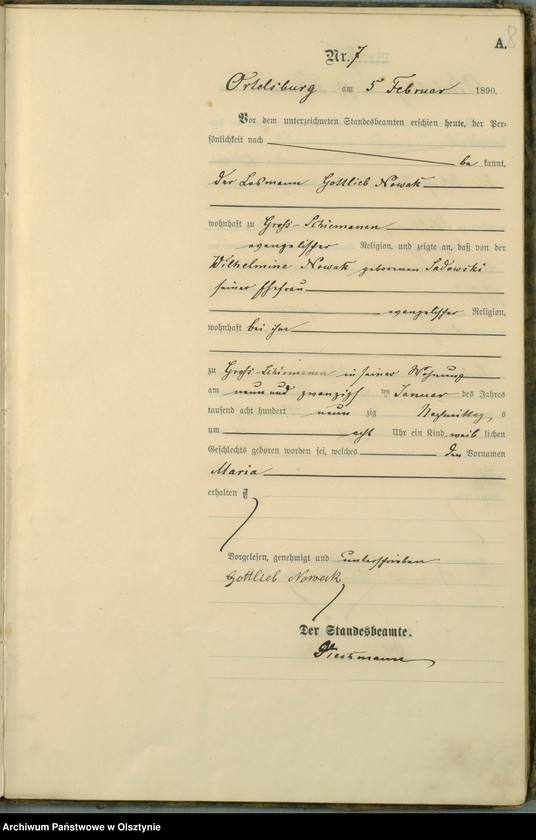 A.
8
Nr. 7
Ortelsburg am 5 Februar 1890.
Vor dem unterzeichneten Standesbeamten erschien heute, der Per-
sönlichkeit nach
be kannt,
der Losmann Gottlieb Nowak
wohnhaft zu Groß-Schiemanen
evangelischer Religion, und zeigte an, daß von der
Wilhelmine Nowak geborenen Sadowski
seiner Ehefrau
evangelischer Religion,
wohnhaft bei ihm
zu Groß-Schiemanen in seiner Wohnung
am neun und zwanzigs ten Januar des Jahres
tausend acht hundert neun zig Nachmittag s
um acht Uhr ein Kind weib lichen
Geschlechts geboren worden sei, welches den Vornamen
Maria
erhalten
Vorgelesen, genehmigt und unterschrieben
Gottlieb Noweck
Der Standesbeamte.
Archiwum Państwowe w Olsztynie